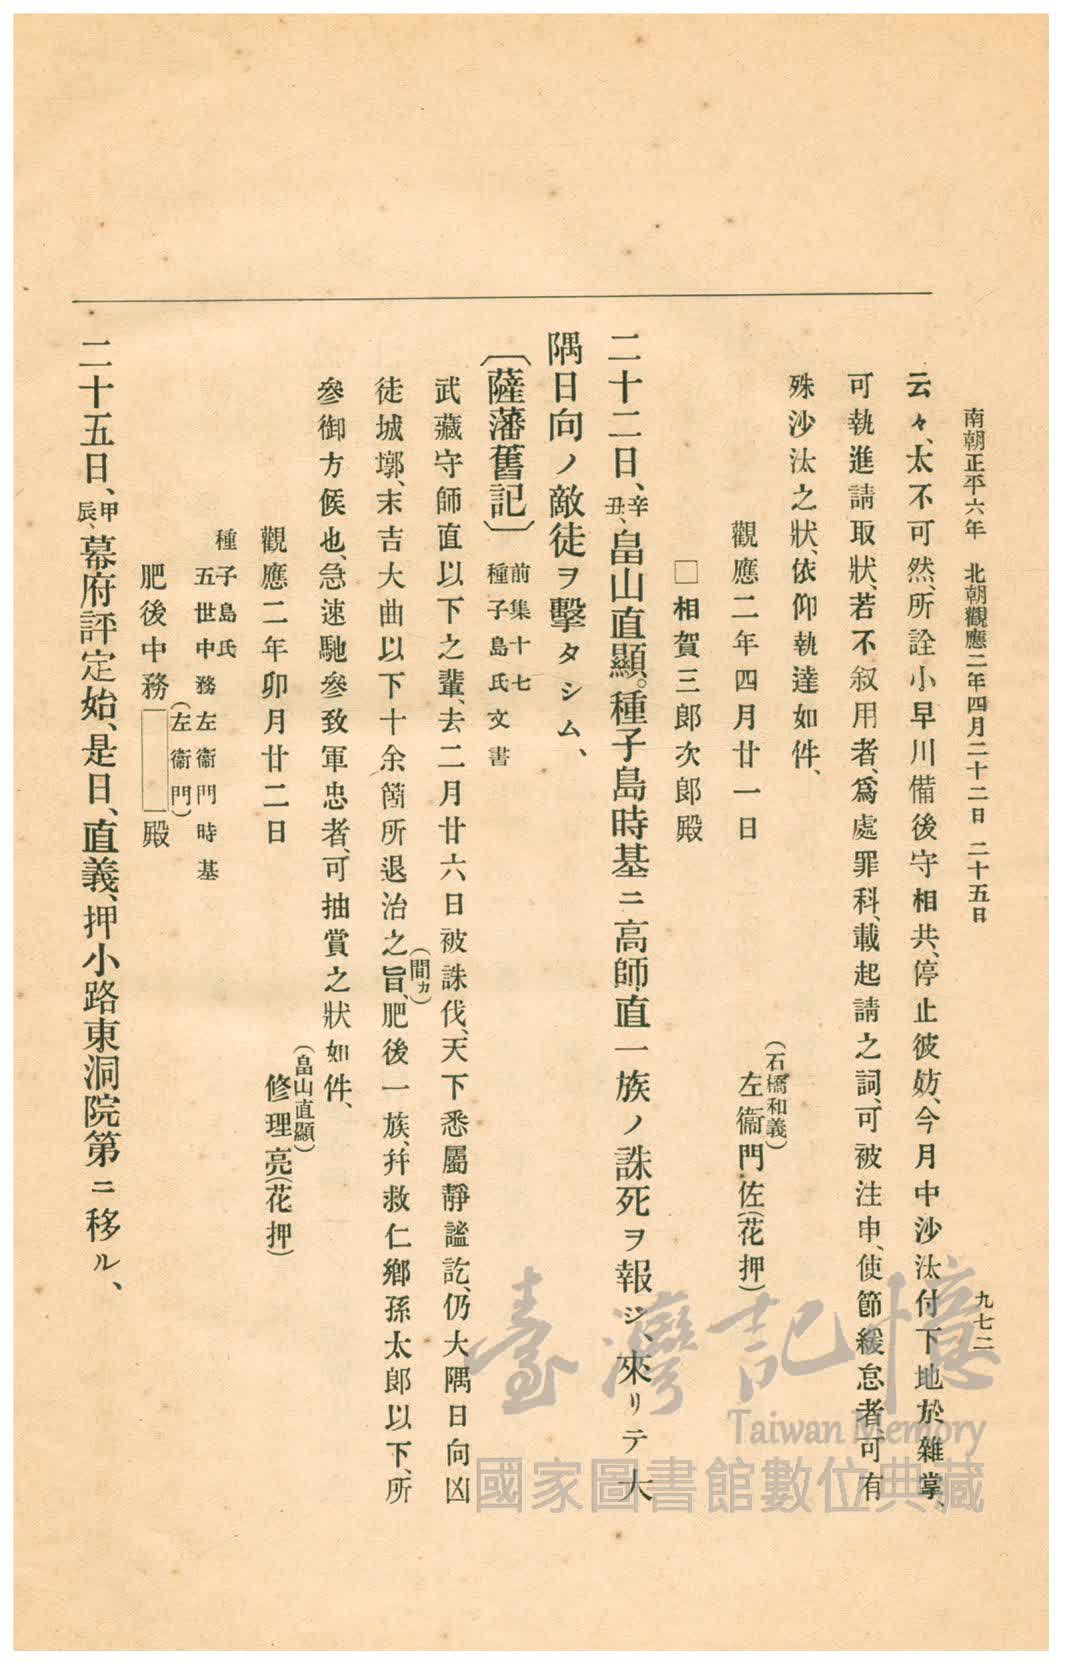 南朝正平六年　北朝觀應二年四月二十二日　二十五日
九七二
云々、太不可然、所詮小早川備後守相共、停止彼妨、今月中沙汰付下地於雜掌、
可執進請取狀、若不叙用者、爲處罪科、載起請之詞、可被注申、使節緩怠者、可有
殊沙汰之狀、依仰執達如件、
觀應二年四月廿一日
(石橋和義)
左衞門佐(花押)
□相賀三郎次郎殿
二十二日、辛丑、畠山直顯。種子島時基ニ高師直一族ノ誅死ヲ報ジ、來リテ大
隅日向ノ敵徒ヲ擊タシム、
〔薩藩舊記〕前集十七
種子島氏文書
武藏守師直以下之輩、去二月廿六日被誅伐、天下悉屬靜謐訖、仍大隅日向凶
徒城墎、末吉大曲以下十余箇所退治之旨、肥後一族、幷救仁鄕孫太郎以下、所
(間カ)
參御方候也、急速馳參致軍忠者、可抽賞之狀如件、
觀應二年卯月廿二日
(畠山直顯)
修理亮(花押)
種子島氏
五世中務左衞門時基
(左衞門)
肥後中務殿
二十五日、甲辰、幕府評定始、是日、直義、押小路東洞院第ニ移ル、
臺灣記憶
Taiwan Memory
國家圖書館數位典藏